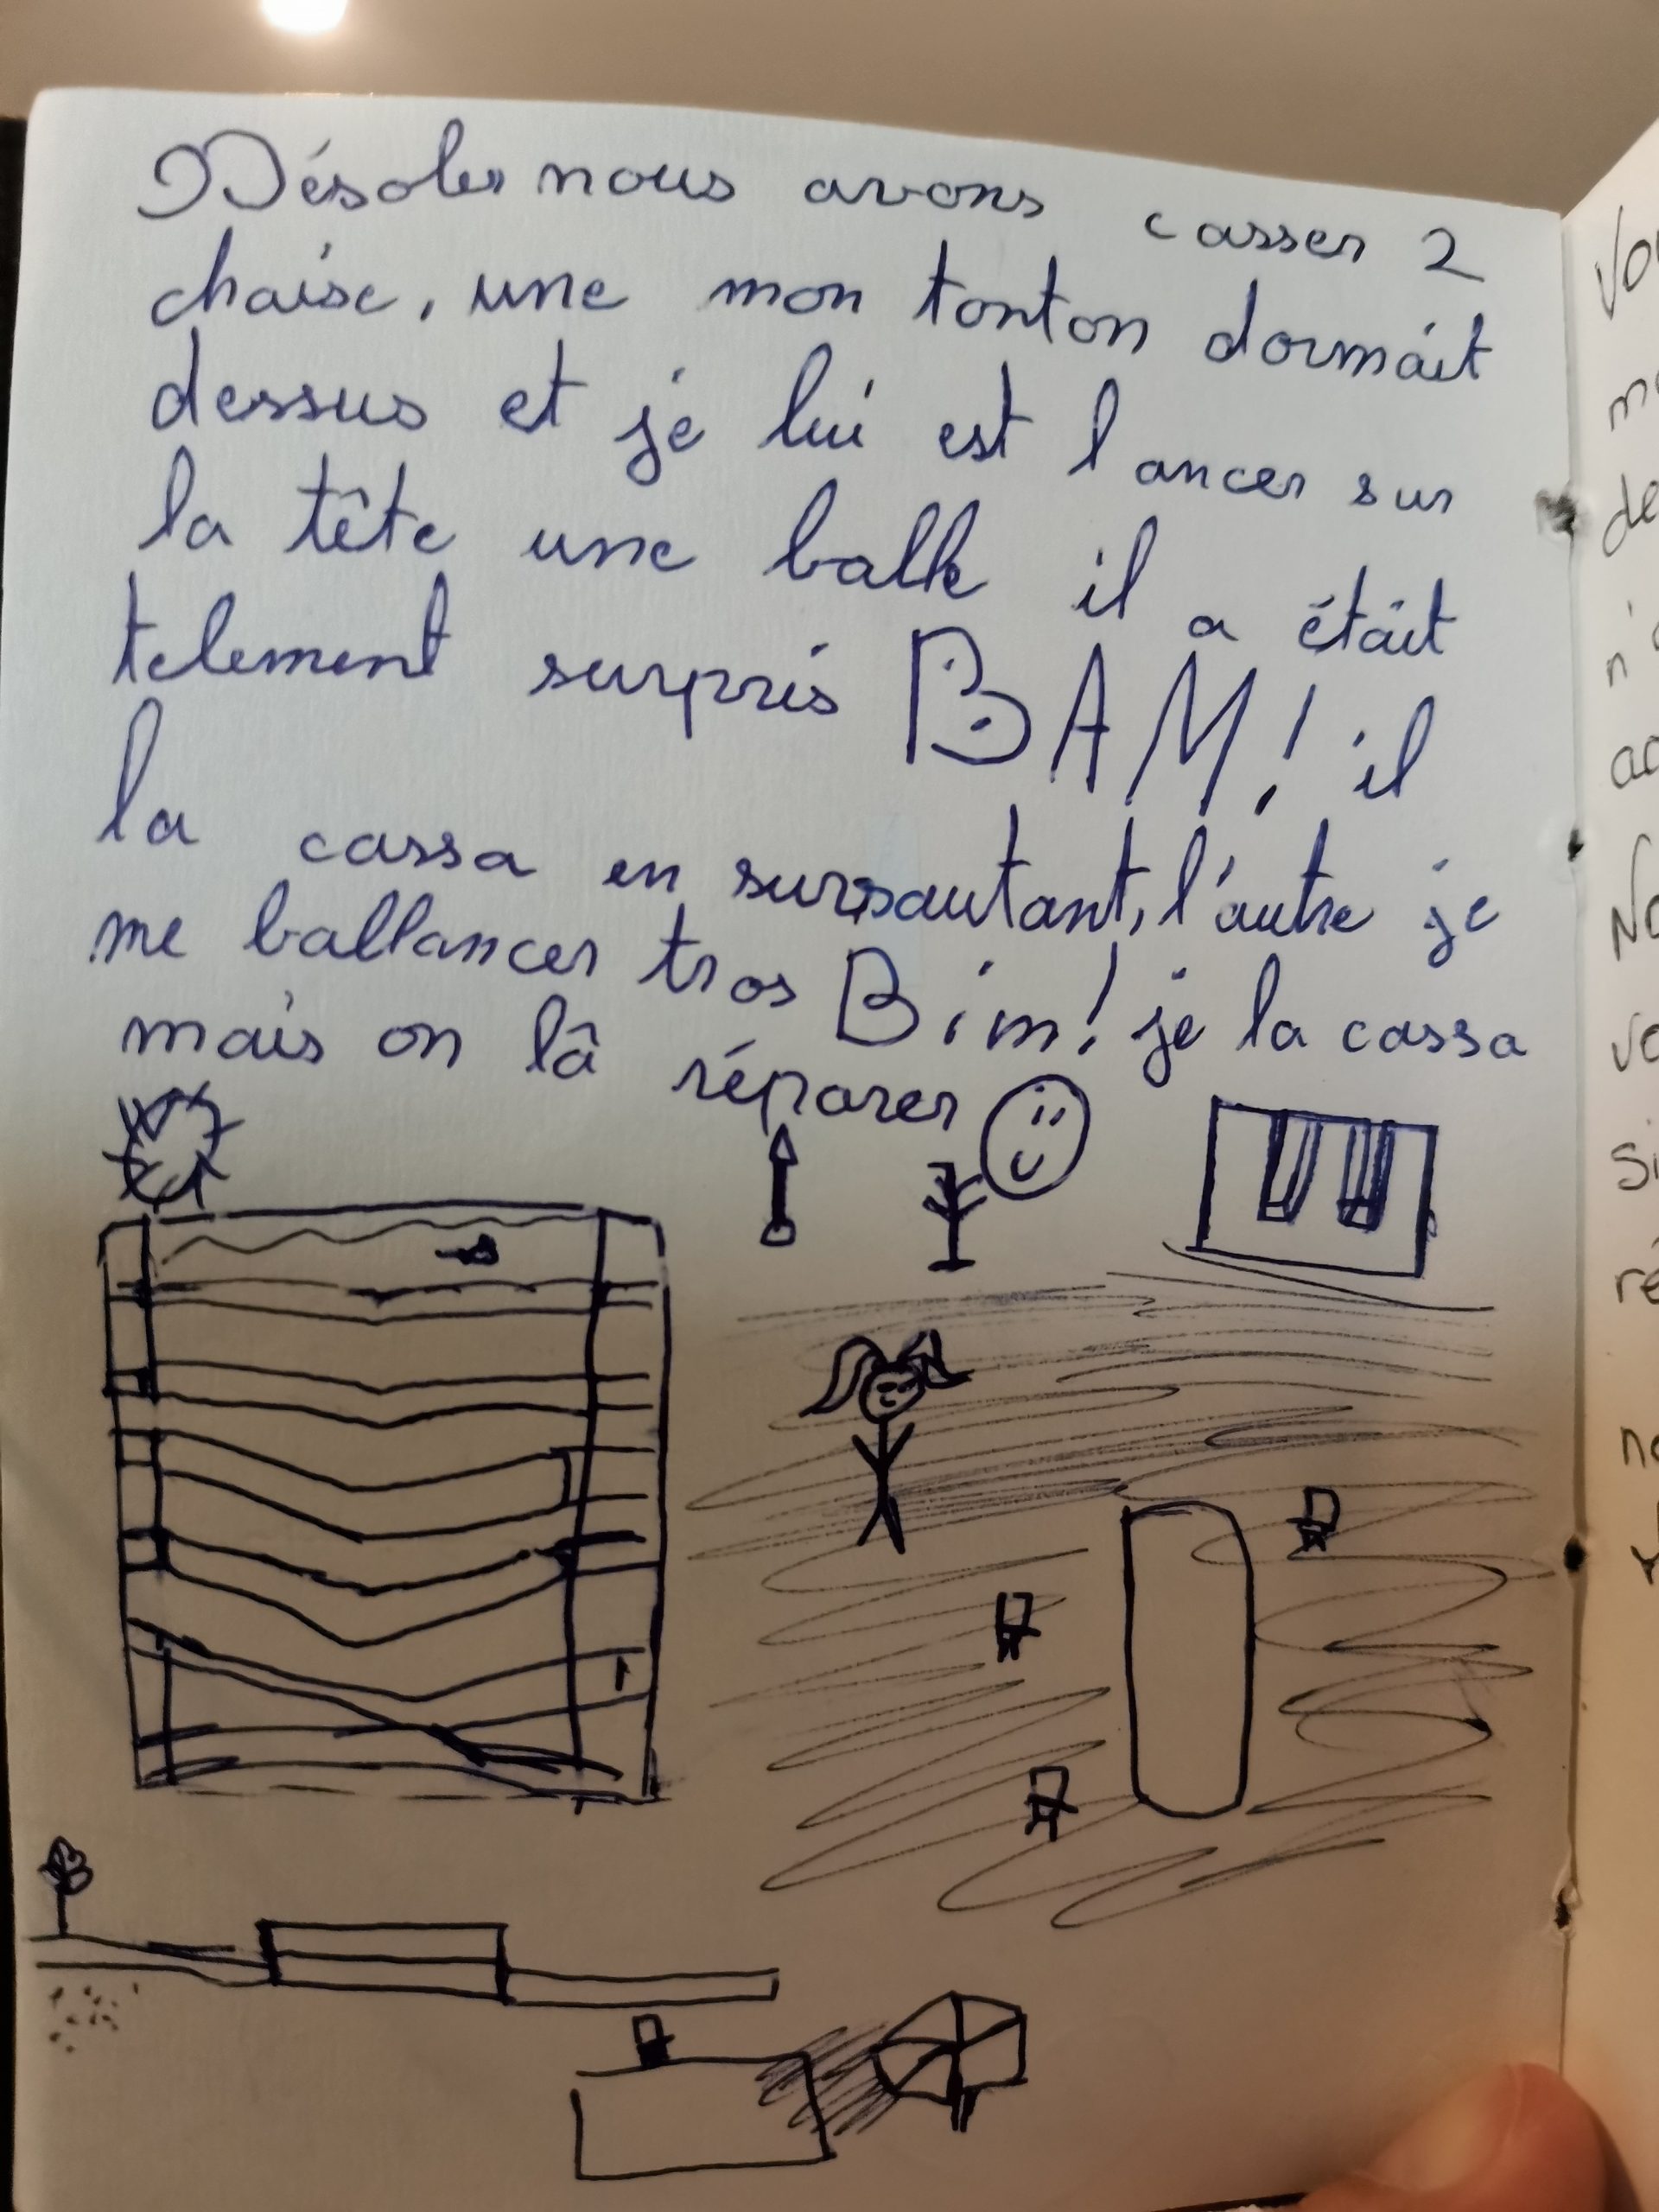 Désoler nous avons casser 2
chaise, une mon tonton dormait
dessus et je lui est lancer sur
la tête une balle il a était
telement surpris BAM! il
la cassa en sursautant, l'autre je
me ballancer trop Bim! je la cassa
mais on là réparer